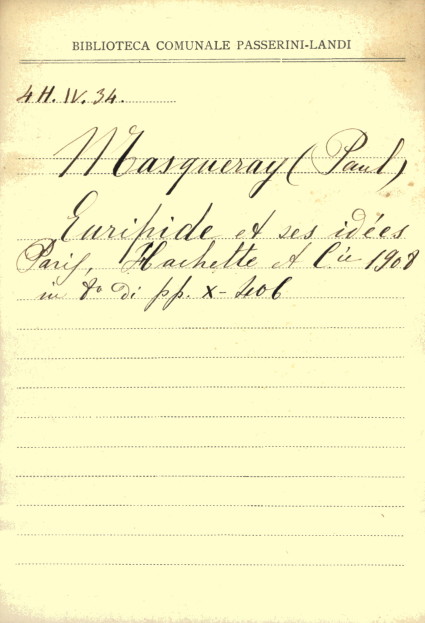 BIBLIOTECA COMUNALE PASSERINI-LANDI
4H. IV. 34.
Masqueray (Paul)
Euripide et ses idées
Paris, Hachette et C.ie 1908
in 8º di pp. X-406